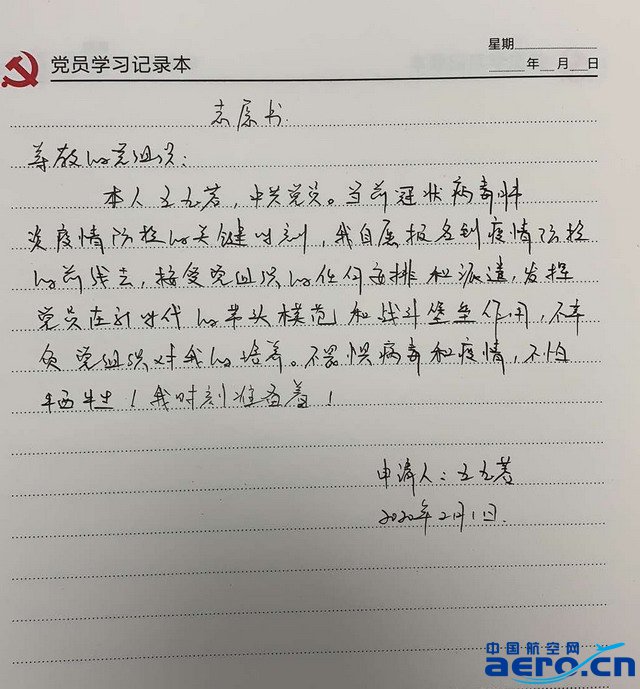 星期
党员学习记录本
年 月 日
志愿书
尊敬的党组织:
本人王五若,中共党员。当前冠状病毒肺
炎疫情防控的关键时刻,我自愿报名到疫情防控
的前线去,接受党组织的任何安排和派遣,发挥
党员在新时代的带头模范和战斗堡垒作用,不辜
负党组织对我的培养。不畏惧病毒和疫情,不怕
牺牲!我时刻准备着!
申请人:王五若
2020年2月1日.
中国航空网
aero.cn